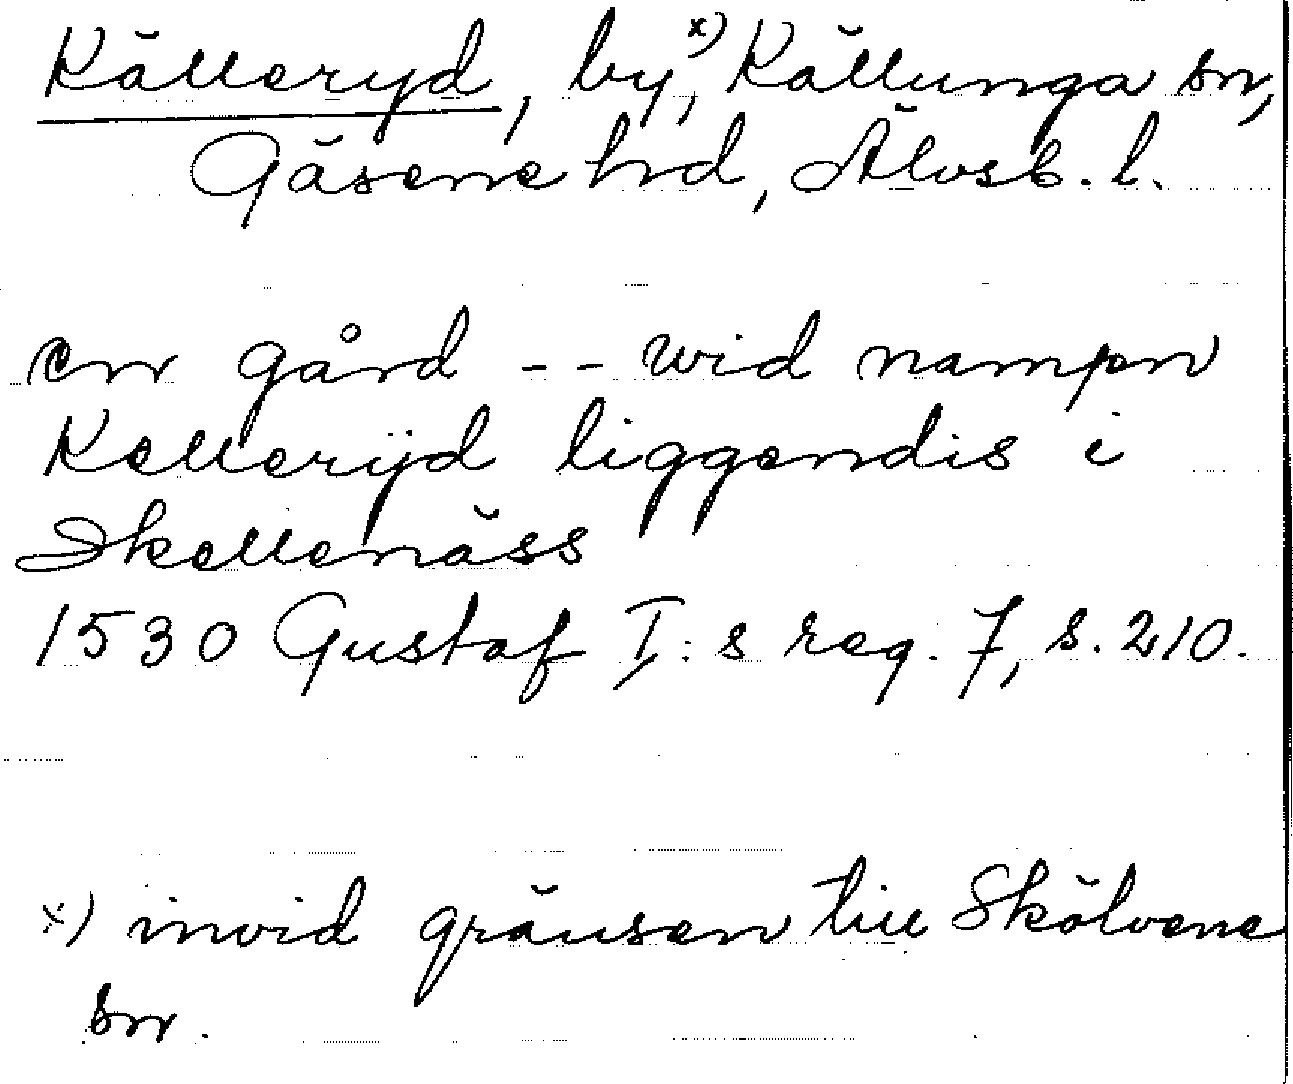 Källeryd, by,x) Källunga sn,
Gäsene hd, Älvsb. l.
en gård -- wid nampn
Kellerÿd liggendis i
Skellenäss
1530 Gustaf I:s reg. 7, s. 210.
x) invid gränsen till Skölvene
sn.